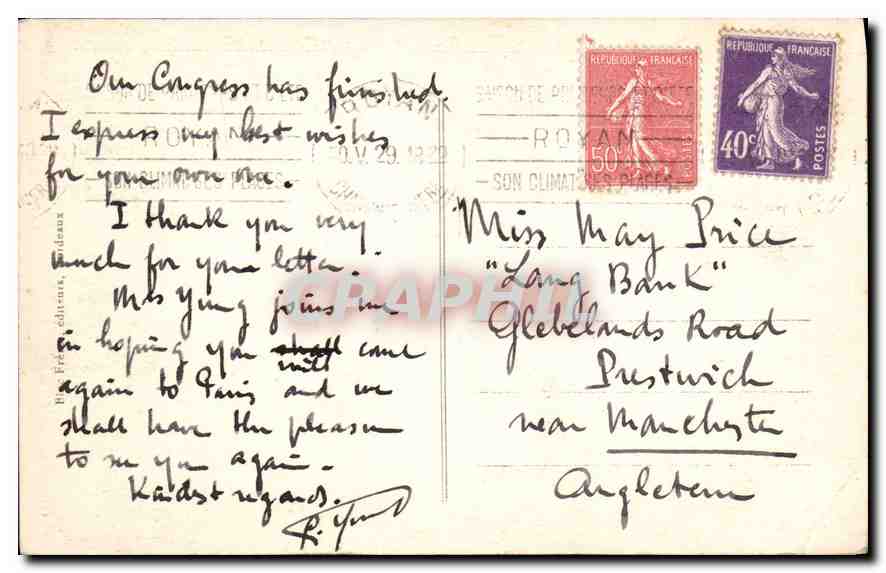 Our Congress has finished
I express my best wishes
for your own one.
I thank you very
much for your letter.
Mrs Yung joins me
in hoping you shall come
will
again to Paris and we
shall have the pleasure
to see you again.
Kindest regards.
Miss May Price
"Lang Bank"
Glebelands Road
Prestwich
near Manchester
Angleterre
REPUBLIQUE FRANÇAISE
50c
POSTES
REPUBLIQUE FRANÇAISE
40c
POSTES
ROYAN
SON CLIMAT SES PLAGES
V. 29
éditeurs, Bordeaux
CPAPHIL